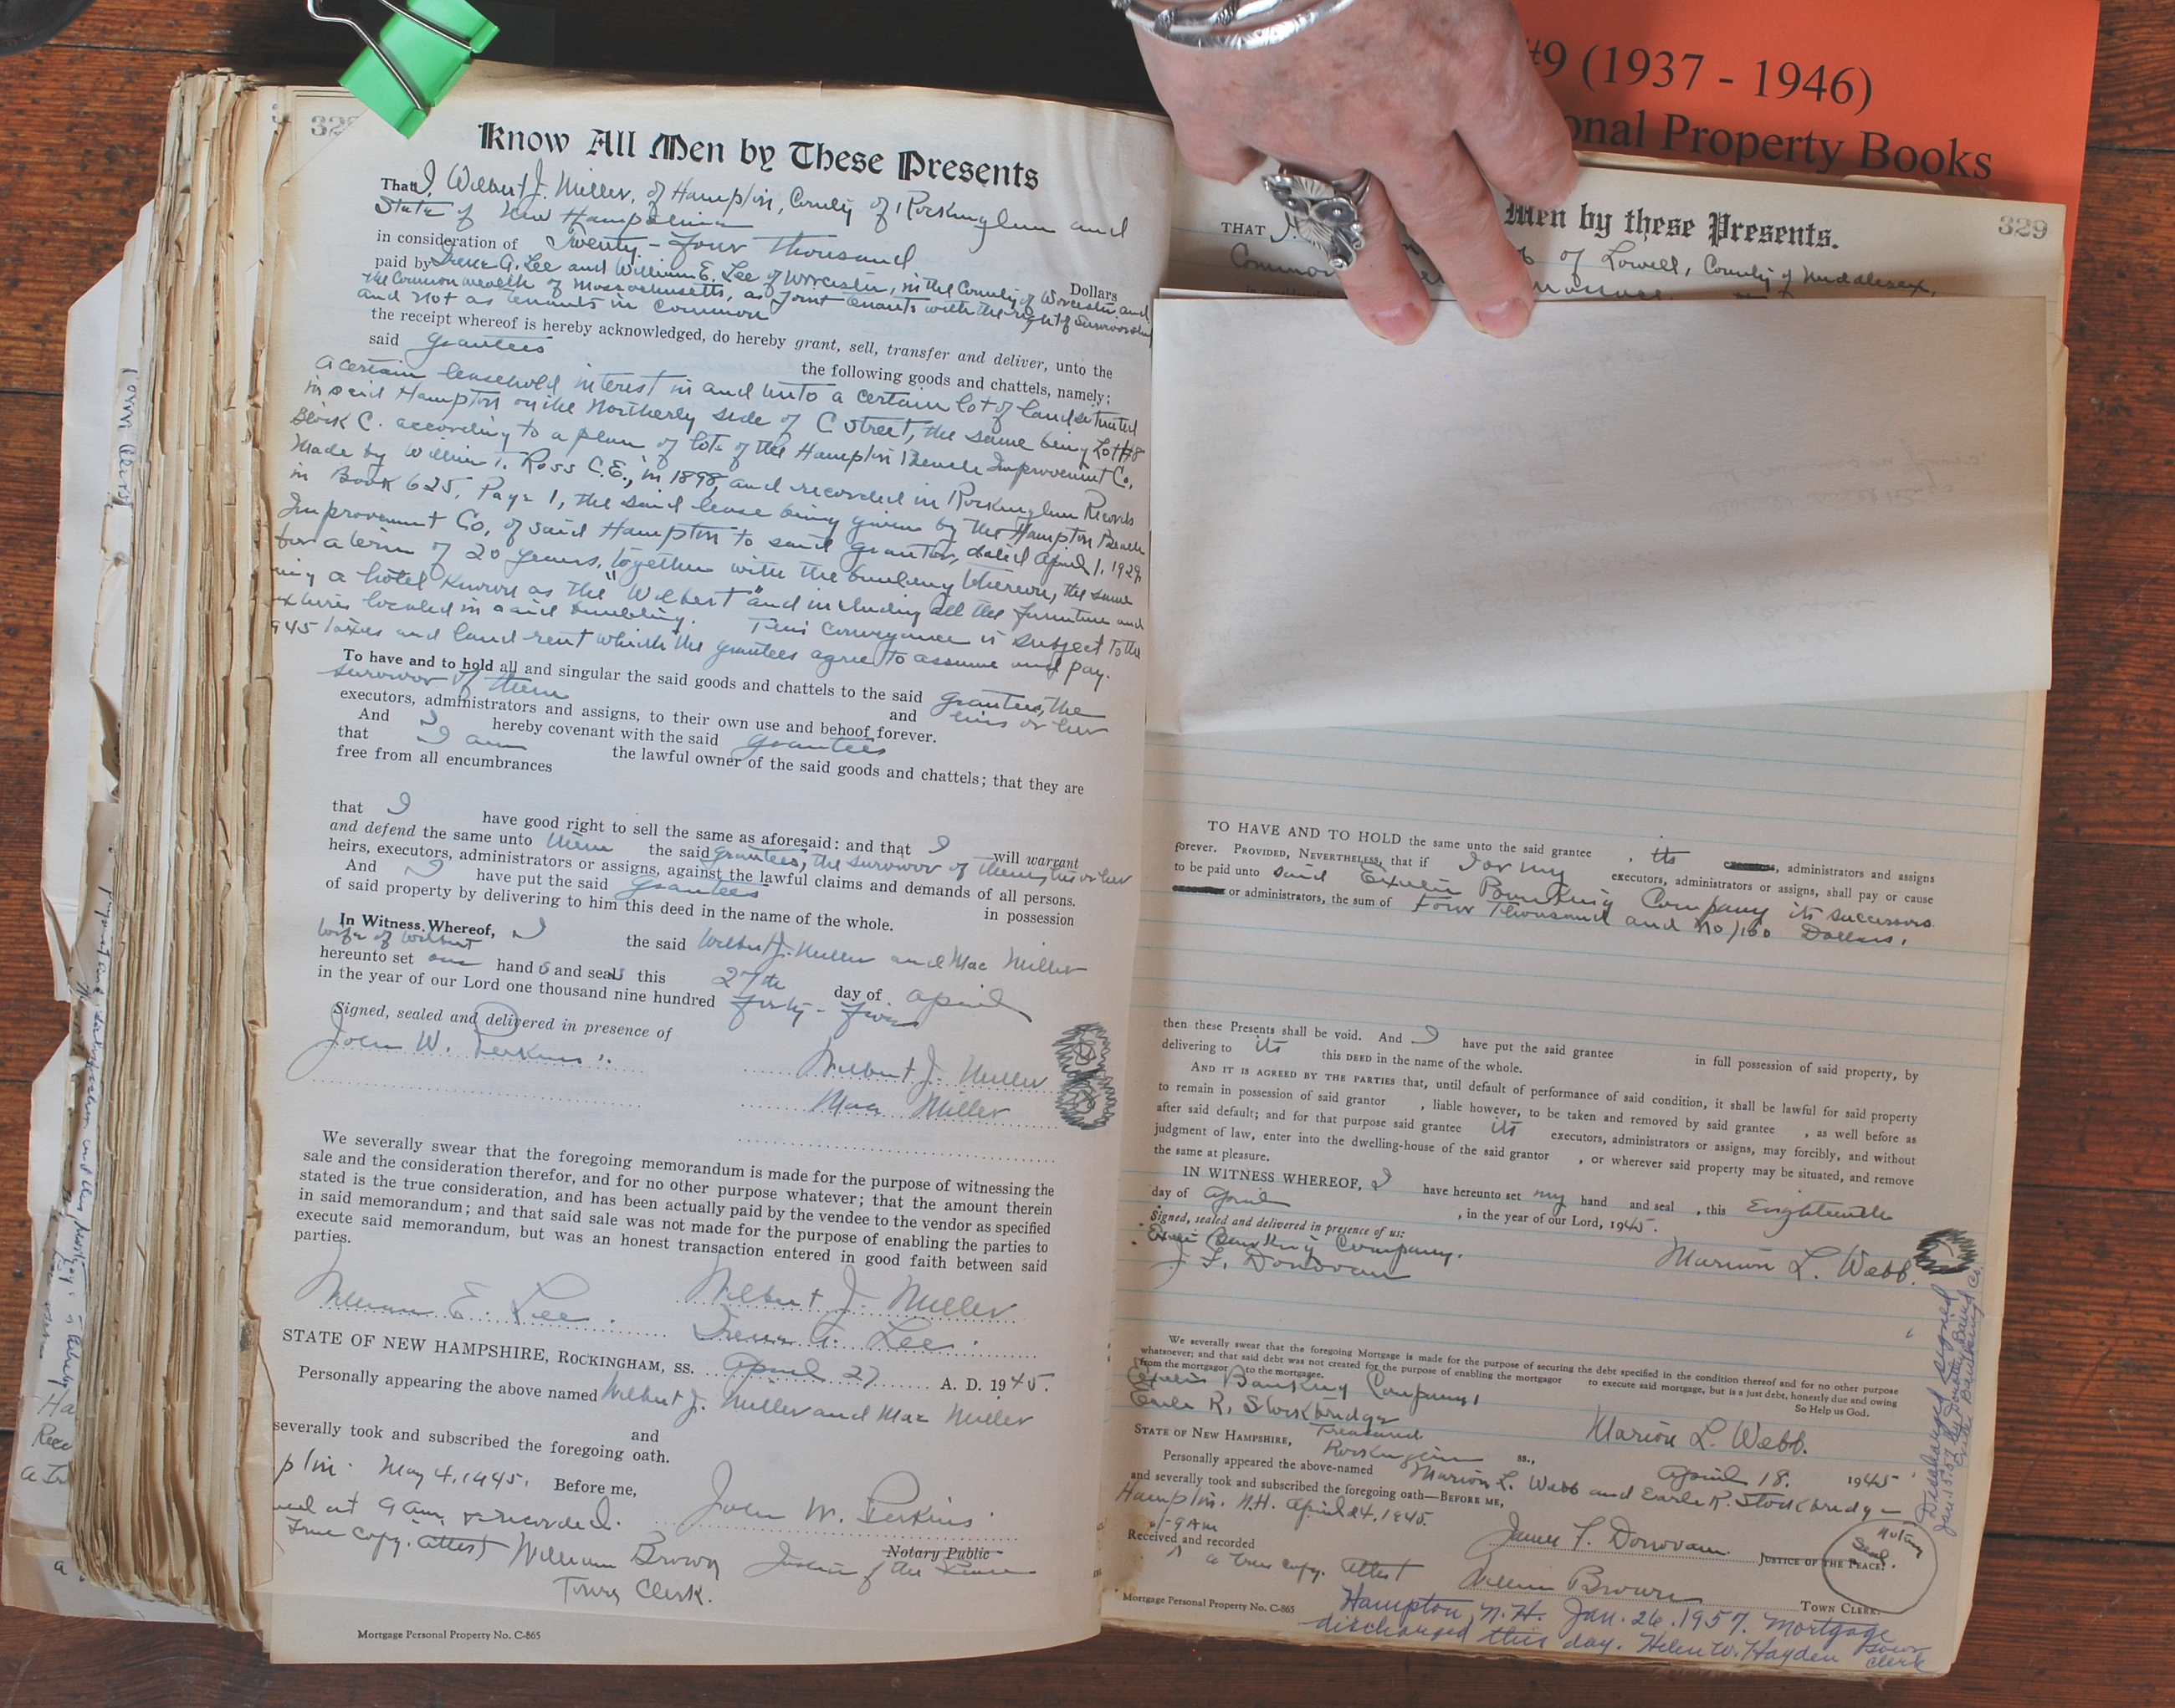 #9 (1937 - 1946)
onal Property Books
328
Know All Men by These Presents
That I, Wilbert J. Miller, of Hampton, County of Rockingham and
State of New Hampshire
in consideration of Twenty-four Thousand
Dollars
paid by Irene A. Lee and William E. Lee of Worcester, in the County of Worcester and
the Commonwealth of Massachusetts, as Joint tenants with the right of Survivorship
and not as tenants in common
the receipt whereof is hereby acknowledged, do hereby grant, sell, transfer and deliver, unto the
said grantees the following goods and chattels, namely;
A certain leasehold interest in and unto a certain lot of land situated
in said Hampton on the Northerly side of C Street, the same being Lot #8
Block C. according to a plan of lots of the Hampton Beach Improvement Co,
Made by William T. Ross C.E., in 1898, and recorded in Rockingham Records
in Book 625, Page 1, the said lease being given by the Hampton Beach
Improvement Co, of said Hampton to said grantor, dated April 1, 1929,
for a term of 20 years, together with the building thereon, the same
ing a hotel known as the "Wilbert" and including all the furniture and
ixtures located in said building. This conveyance is subject to the
945 taxes and land rent which the grantees agree to assume and pay.
To have and to hold all and singular the said goods and chattels to the said grantees, the
survivor of them and his or her
executors, administrators and assigns, to their own use and behoof forever.
And I hereby covenant with the said grantees
that I am the lawful owner of the said goods and chattels; that they are
free from all encumbrances
that I have good right to sell the same as aforesaid: and that I will warrant
and defend the same unto them the said grantees, the survivor of them, his or her
heirs, executors, administrators or assigns, against the lawful claims and demands of all persons.
And I have put the said grantees in possession
of said property by delivering to him this deed in the name of the whole.
In Witness Whereof, I the said Wilbert J. Miller and Mae Miller
wife of Wilbert
hereunto set our hands and seals this 27th day of April
in the year of our Lord one thousand nine hundred forty-five
Signed, sealed and delivered in presence of
John W. Perkins
Wilbert J. Miller
Mae Miller
We severally swear that the foregoing memorandum is made for the purpose of witnessing the
sale and the consideration therefor, and for no other purpose whatever; that the amount therein
stated is the true consideration, and has been actually paid by the vendee to the vendor as specified
in said memorandum; and that said sale was not made for the purpose of enabling the parties to
execute said memorandum, but was an honest transaction entered in good faith between said
parties.
William E. Lee Wilbert J. Miller
Irene A. Lee
STATE OF NEW HAMPSHIRE, ROCKINGHAM, SS. April 27 A. D. 1945.
Personally appearing the above named Wilbert J. Miller and Mae Miller
and
severally took and subscribed the foregoing oath.
pton. May 4, 1945. Before me,
ved at 9 AM & recorded. John W. Perkins
True copy. Attest William Brown Notary Public Justice of the Peace
Town Clerk.
Mortgage Personal Property No. C-865
Men by these Presents.
329
THAT I, of Lowell, County of Middlesex,
Common
TO HAVE AND TO HOLD the same unto the said grantee, its executors, administrators and assigns
forever. PROVIDED, NEVERTHELESS, that if I or my executors, administrators or assigns, shall pay or cause
to be paid unto said Exeter Banking Company its successors
executors or administrators, the sum of Four Thousand and no/100 Dollars.
then these Presents shall be void. And I have put the said grantee in full possession of said property, by
delivering to its this DEED in the name of the whole.
AND IT IS AGREED BY THE PARTIES that, until default of performance of said condition, it shall be lawful for said property
to remain in possession of said grantor, liable however, to be taken and removed by said grantee, as well before as
after said default; and for that purpose said grantee its executors, administrators or assigns, may forcibly, and without
judgment of law, enter into the dwelling-house of the said grantor, or wherever said property may be situated, and remove
the same at pleasure.
IN WITNESS WHEREOF, I have hereunto set my hand and seal, this Eighteenth
day of April, in the year of our Lord, 1945.
Signed, sealed and delivered in presence of us:
Exeter Banking Company.
J. F. Donovan
Marion L. Webb.
We severally swear that the foregoing Mortgage is made for the purpose of securing the debt specified in the condition thereof and for no other purpose
whatsoever; and that said debt was not created for the purpose of enabling the mortgagor to execute said mortgage, but is a just debt, honestly due and owing
from the mortgagor to the mortgagee. So Help us God.
Exeter Banking Company,
Earle R. Stockbridge
Treasurer
Marion L. Webb.
STATE OF NEW HAMPSHIRE, Rockingham ss., April 18. 1945
Personally appeared the above-named Marion L. Webb and Earle R. Stockbridge
and severally took and subscribed the foregoing oath—BEFORE ME,
Hampton. N.H. April 24, 1945.
9 AM
James F. Donovan. JUSTICE OF THE PEACE.
Notary Seal.
Received and recorded
a true copy. Attest William Brown TOWN CLERK.
Mortgage Personal Property No. C-865
Hampton, N.H. Jan. 26, 1957. Mortgage
discharged this day. Helen W. Hayden Town
Clerk
Discharged signed